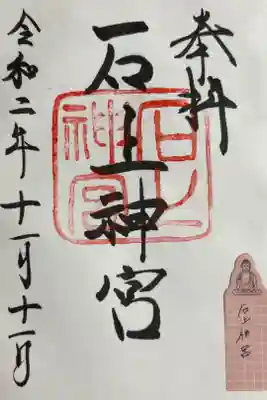 奉拝
石上神宮
石上
神宮
令和二年十一月十一日
石上神宮